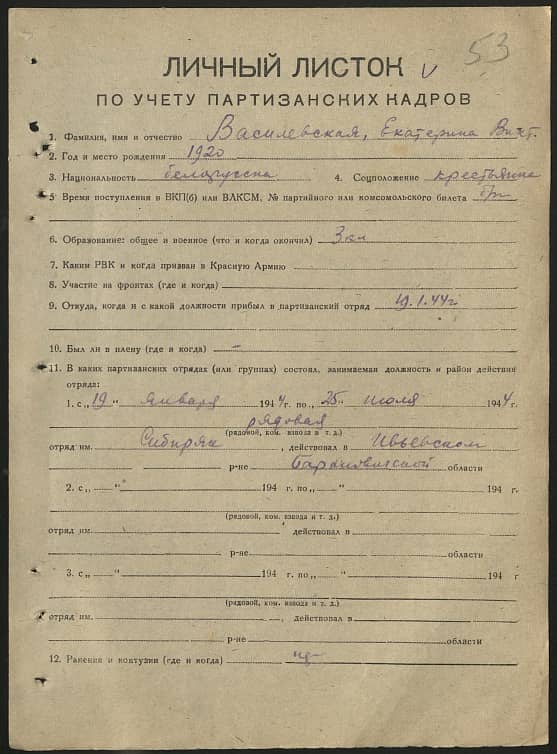 53
ЛИЧНЫЙ ЛИСТОК V
ПО УЧЕТУ ПАРТИЗАНСКИХ КАДРОВ
1. Фамилия, имя и отчество Василевская, Екатерина Викт.
2. Год и место рождения 1920
3. Национальность белорусска 4. Соцположение крестьянка
5 Время поступления в ВКП(б) или ВЛКСМ, № партийного или комсомольского билета б/п
6. Образование: общее и военное (что и когда окончил) 3 кл
7. Каким РВК и когда призван в Красную Армию
8. Участие на фронтах (где и когда)
9. Откуда, когда и с какой должности прибыл в партизанский отряд 19.1.44г
10. Был ли в плену (где и когда) –
11. В каких партизанских отрядах (или группах) состоял, занимаемая должность и район действия
отряда:
1. с „ 19 " января 1944 г. по „ 25 " июля 1944 г.
рядовая
(рядовой, ком. взвода и т. д.)
отряд им. Сибиряк, действовал в Ивьевском
р-не Барановичской области
2. с „ " 194 г. по „ " 194 г.
(рядовой, ком. взвода и т. д.)
отряд им. , действовал в
р-не области
3. с „ " 194 г. по „ " 194 г
(рядовой, ком. взвода и т. д.)
отряд им. , действовал в
р-не области
12. Ранения и контузии (где и когда)